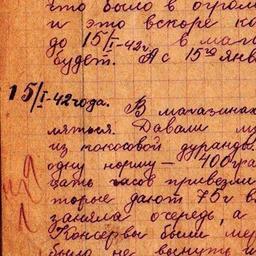 что было в огром
и это вскоре ко
до 15/I-42г. в маг
будет. А с 15го янв
15/I-42 года. В магазинах
ляться. Давали м
из кокосовой дуранды.
одну норму — 400 гра
цать часов привезли
торые дают 75 г в
заняла очередь, а
Консервы были ме
было не вынуть и